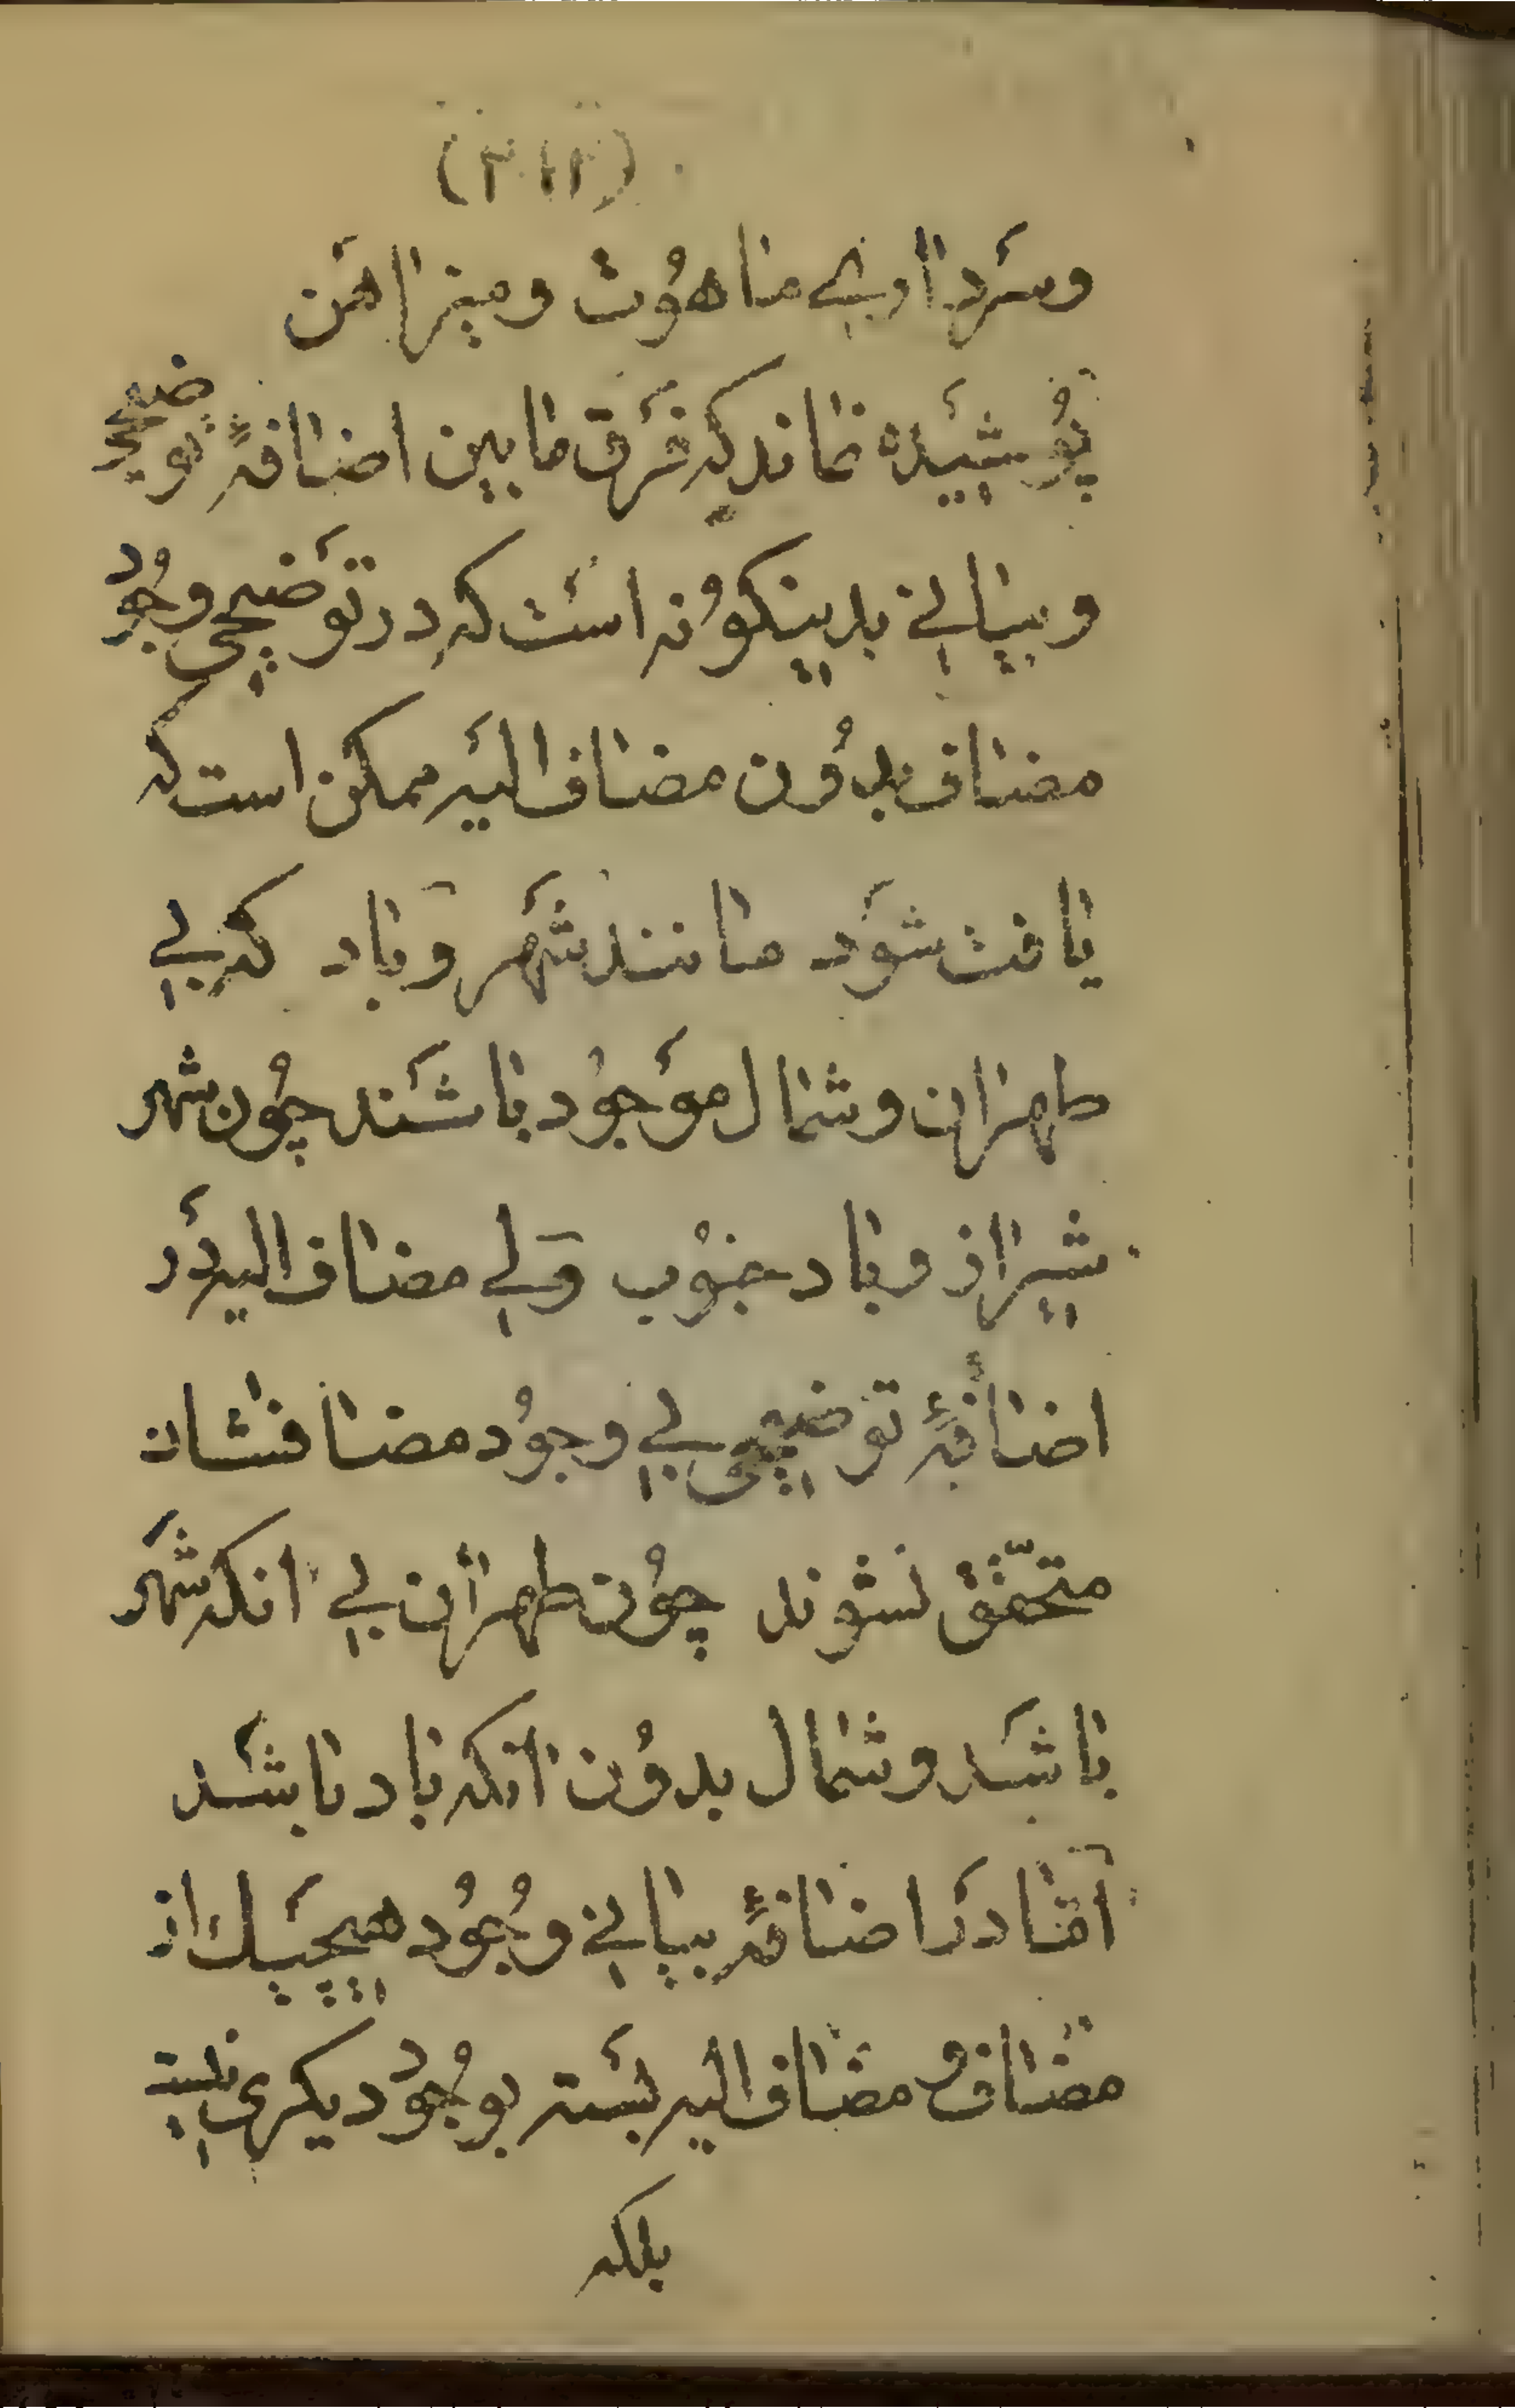 و سَردار بے ماهُوت و میزا هَن
پُوشیَده نماند که فَرق ما بین اضافهٔ توضیحی
و بیانے بدینگوُنه است که در توَضیحی وجُود
مضاف بدوُن مضاف الیَه ممکن است که
یافت شوَد مانند شَهر وَ باد که بے
طهران و شمال موَجوُد باشَند چوُن شهر
شیراز و باد جنوُب وَلے مضاف الیه دَر
اضافهٔ توضیحی بے وجوُد مضافشان
متحقّق نشوند چوُن طهران بے آنکه شَهر
باشَد و شمال بدوُن آنکه باد باشَد
امّا دَر اضافهٔ بیانے وُجوُد هیچیَک از
مضاف و مضاف الیه بسَته بوجُود دیگری نیست
بلکه